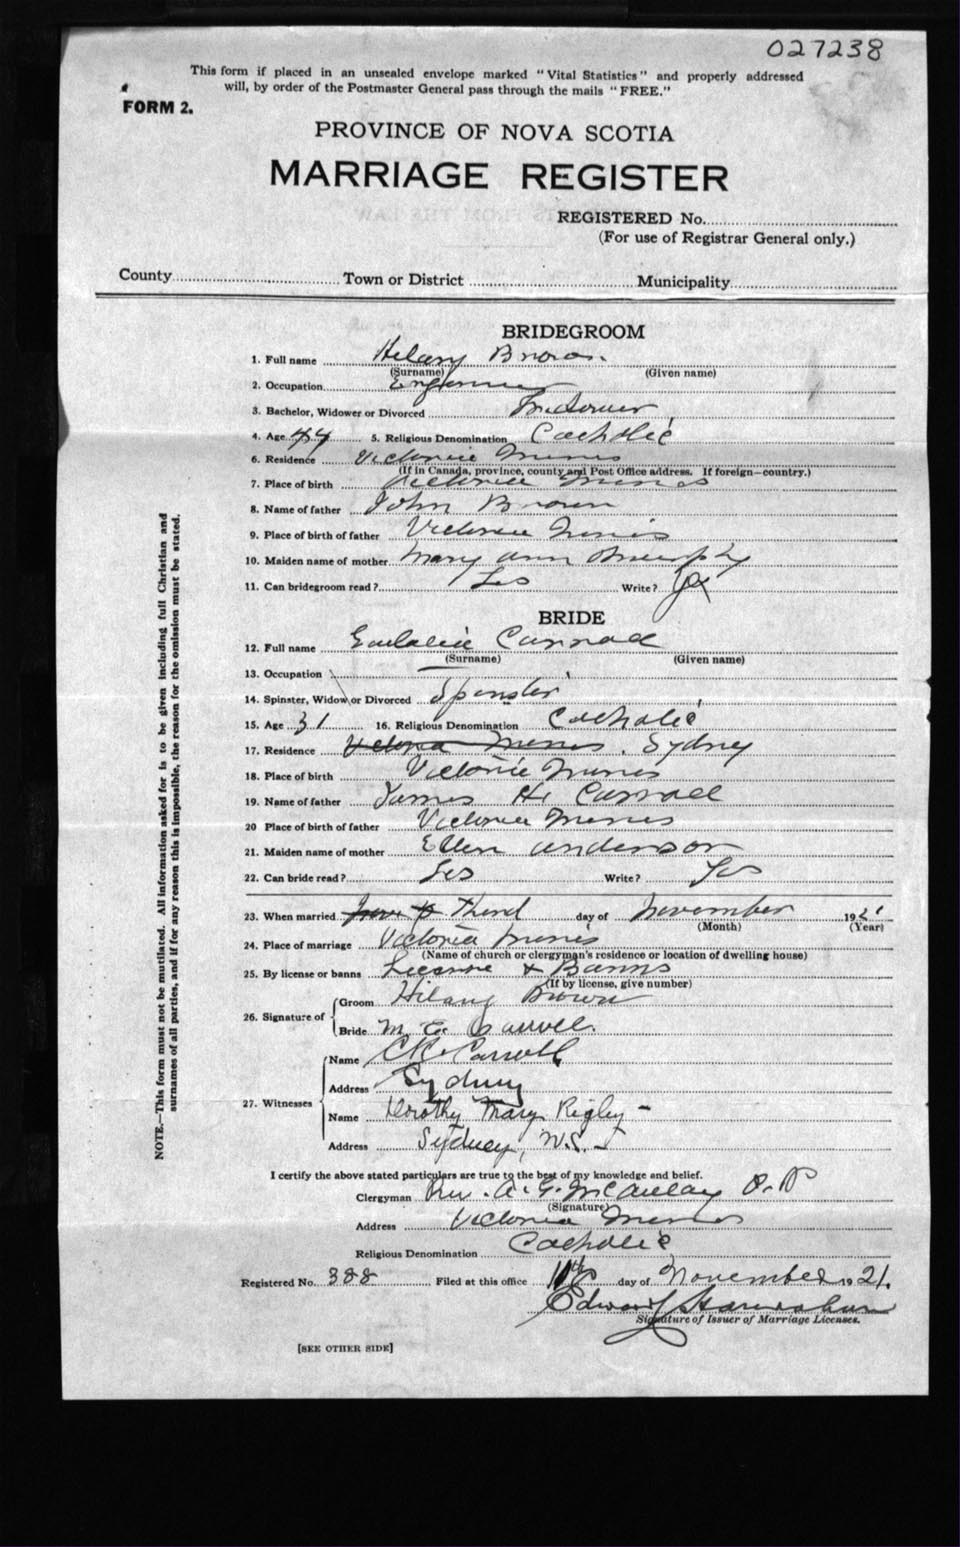 027238
This form if placed in an unsealed envelope marked "Vital Statistics" and properly addressed
will, by order of the Postmaster General pass through the mails "FREE."
FORM 2.
PROVINCE OF NOVA SCOTIA
MARRIAGE REGISTER
REGISTERED No.
(For use of Registrar General only.)
County Town or District Municipality
BRIDEGROOM
1. Full name Hilary Brown
(Surname) (Given name)
2. Occupation
3. Bachelor, Widower or Divorced Widower
4. Age 44 5. Religious Denomination Catholic
6. Residence Victoria Mines
(If in Canada, province, county and Post Office address. If foreign—country.)
7. Place of birth Victoria Mines
8. Name of father John Brown
9. Place of birth of father Victoria Mines
10. Maiden name of mother Mary Ann Murphy
11. Can bridegroom read? Yes Write? Yes
BRIDE
12. Full name Eulalie Carroll
(Surname) (Given name)
13. Occupation
14. Spinster, Widow or Divorced Spinster
15. Age 31 16. Religious Denomination Catholic
17. Residence Victoria Mines. Sydney
18. Place of birth Victoria Mines
19. Name of father James H. Carroll
20 Place of birth of father Victoria Mines
21. Maiden name of mother Ellen Anderson
22. Can bride read? Yes Write? Yes
23. When married Third day of November 1921
(Month) (Year)
24. Place of marriage Victoria Mines
(Name of church or clergyman's residence or location of dwelling house)
25. By license or banns License & Banns
(If by license, give number)
26. Signature of Groom Hilary Brown
Bride M. E. Carroll.
27. Witnesses Name Carroll
Address Sydney
Name Dorothy Mary Rigby
Address Sydney, N.S.
I certify the above stated particulars are true to the best of my knowledge and belief.
Clergyman Rev. A. G. McAulay P.P
(Signature)
Address Victoria Mines
Religious Denomination Catholic
Registered No. 388 Filed at this office 11th day of November 1921.
Edward
Signature of Issuer of Marriage Licenses.
[SEE OTHER SIDE]
NOTE.—This form must not be mutilated. All information asked for is to be given including full Christian and
surnames of all parties, and if for any reason this is impossible, the reason for the omission must be stated.